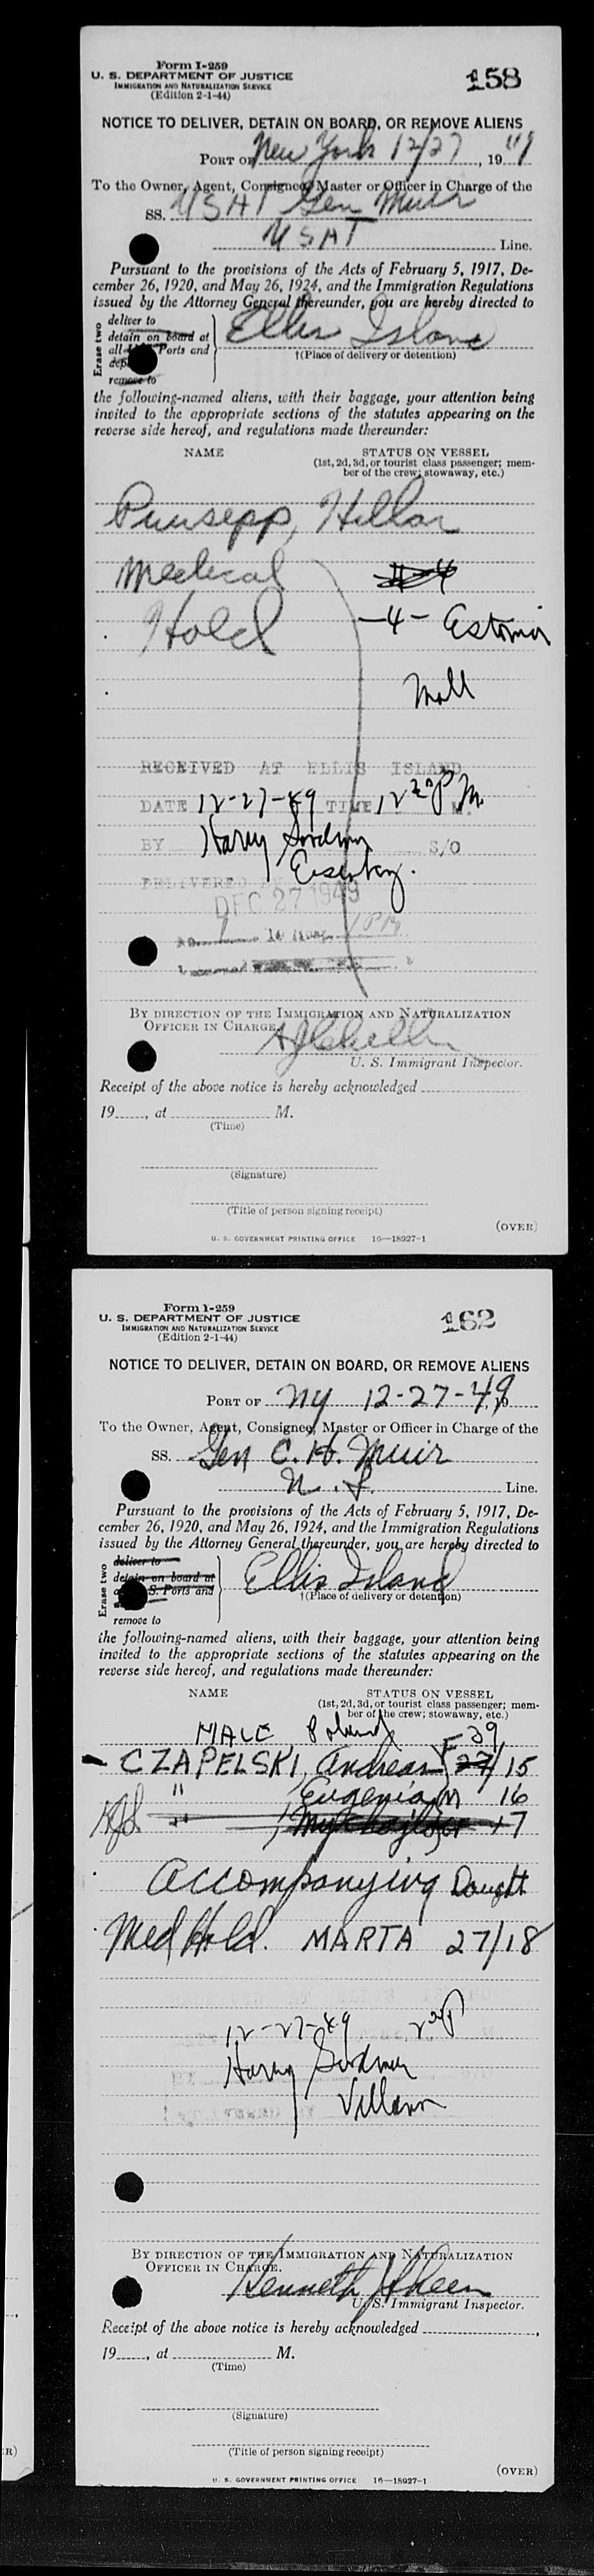 Form I-259
U. S. DEPARTMENT OF JUSTICE
IMMIGRATION AND NATURALIZATION SERVICE
(Edition 2-1-44)
158
NOTICE TO DELIVER, DETAIN ON BOARD, OR REMOVE ALIENS
PORT OF New York 12/27, 19
To the Owner, Agent, Consignee, Master or Officer in Charge of the
SS. USAT Gen Muir
USAT Line.
Pursuant to the provisions of the Acts of February 5, 1917, De-
cember 26, 1920, and May 26, 1924, and the Immigration Regulations
issued by the Attorney General thereunder, you are hereby directed to
Erase two
deliver to
detain on board at
all Ports and
remove to
Ellis Island
†(Place of delivery or detention)
the following-named aliens, with their baggage, your attention being
invited to the appropriate sections of the statutes appearing on the
reverse side hereof, and regulations made thereunder:
NAME STATUS ON VESSEL
(1st, 2d, 3d, or tourist class passenger; mem-
ber of the crew; stowaway, etc.)
Puusepp, Hillar
Medical
Hold
-4- Estonia
RECEIVED AT ELLIS ISLAND
DATE 12-27-49 TIME 12 30 P M.
BY Harry S/O
DELIVERED
DEC 27 1949
BY DIRECTION OF THE IMMIGRATION AND NATURALIZATION
OFFICER IN CHARGE.
U. S. Immigrant Inspector.
Receipt of the above notice is hereby acknowledged
19, at M.
(Time)
(Signature)
(Title of person signing receipt)
(OVER)
U. S. GOVERNMENT PRINTING OFFICE 16—18927-1
Form I-259
U. S. DEPARTMENT OF JUSTICE
IMMIGRATION AND NATURALIZATION SERVICE
(Edition 2-1-44)
162
NOTICE TO DELIVER, DETAIN ON BOARD, OR REMOVE ALIENS
PORT OF NY 12-27-49
To the Owner, Agent, Consignee, Master or Officer in Charge of the
SS. Gen C. H. Muir
Line.
Pursuant to the provisions of the Acts of February 5, 1917, De-
cember 26, 1920, and May 26, 1924, and the Immigration Regulations
issued by the Attorney General thereunder, you are hereby directed to
Erase two
deliver to
detain on board at
S. Ports and
remove to
Ellis Island
†(Place of delivery or detention)
the following-named aliens, with their baggage, your attention being
invited to the appropriate sections of the statutes appearing on the
reverse side hereof, and regulations made thereunder:
NAME STATUS ON VESSEL
(1st, 2d, 3d, or tourist class passenger; mem-
ber of the crew; stowaway, etc.)
MALE Poland
CZAPELSKI, Andreas F 29/15
" Eugenia M 16
Accompanying Daught
Med Hold. MARTA 27/18
12-27-49
Harry
BY DIRECTION OF THE IMMIGRATION AND NATURALIZATION
OFFICER IN CHARGE.
Kenneth
U. S. Immigrant Inspector.
Receipt of the above notice is hereby acknowledged
19, at M.
(Time)
(Signature)
(Title of person signing receipt)
(OVER)
U. S. GOVERNMENT PRINTING OFFICE 16—18927-1